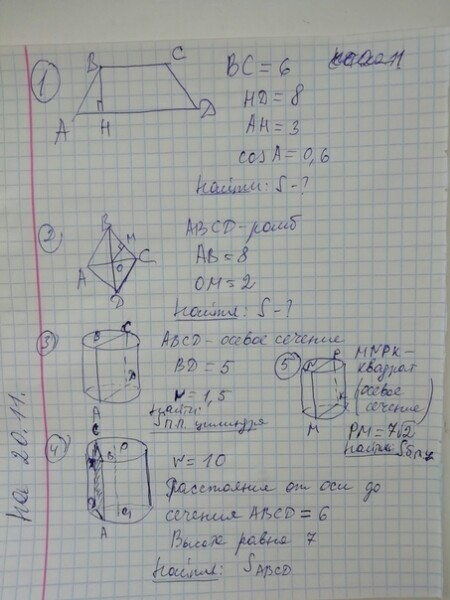 1
B C
A H D
BC = 6
HD = 8
AH = 3
cosA = 0,6
Найти: S - ?
2
B
M
A O C
D
ABCD - ромб
AB = 8
OM = 2
Найти: S - ?
3
B C
A D
ABCD - осевое сечение
BD = 5
r = 1,5
Найти:
Sп.п. цилиндра
5
N P
M K
MNPK -
квадрат
(осевое
сечение)
PM = 7√2
Найти Sб.п.ц
4
C
B O
A O₁
r = 10
Расстояния от оси до
сечения ABCD = 6
Высота равна 7
Найти: SABCD
на 20.11.